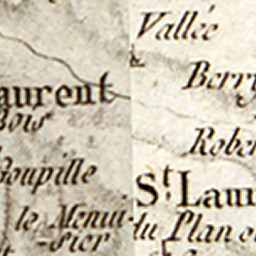 Vallée
Berry
aurent
Bois
Rober
Goupille
St. Laur
le Menui-
-sier
du Plan